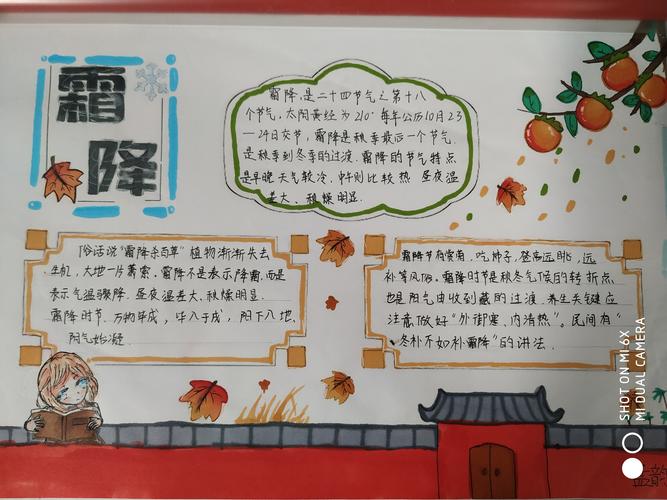 霜
降
霜降,是二十四节气之第十八
个节气,太阳黄经为210°每年公历10月23
—24日交节,霜降是秋季最后一个节气,
是秋季到冬季的过渡.霜降的节气特点
是早晚天气较冷、中午则比较热 昼夜温
差大、秋燥明显.
俗话说"霜降杀百草"植物渐渐失去
生机,大地一片萧索.霜降不是表示降霜,而是
表示气温骤降、昼夜温差大、秋燥明显.
霜降时节.万物毕成,毕入于戌,阳下入地、
阳气始凝
霜降节有赏菊、吃柿子,登高远眺、远
补等风俗.霜降时节是秋冬气候的转折点
也是阳气由收到藏的过渡.养生关键应
注意做好"外御寒、内清热"。民间有"
冬补不如补霜降"的讲法.
SHOT ON MI 6X
MI DUAL CAMERA